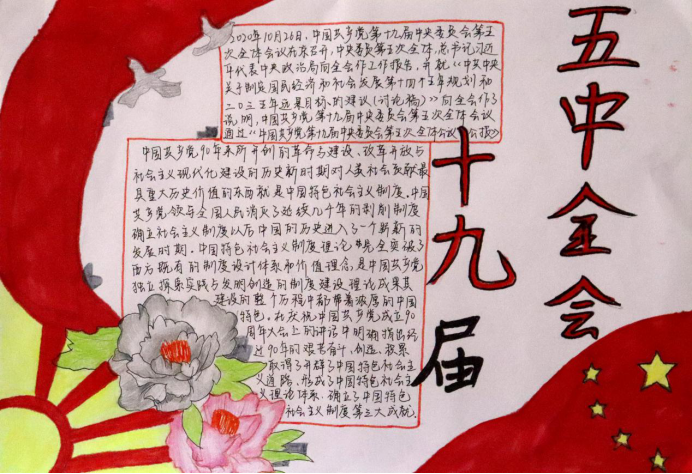 十九届
五中全会
2020年10月26日,中国共产党第十九届中央委员会第五
次全体会议在京召开,中央委员第五次全体,总书记习近
平代表中央政治局向全会作工作报告,并就《中共中央
关于制定国民经济和社会发展第十四个五年规划和
二〇三五年远景目标的建议(讨论稿)》向全会作了
说明,中国共产党第十九届中央委员会第五次全体会议
通过《中国共产党第十九届中央委员会第五次全体会议公报》
中国共产党90年来所开创的革命与建设、改革开放与
社会主义现代化建设的历史新时期对人类社会贡献最
具重大历史价值的东西就是中国特色社会主义制度。中国
共产党领导全国人民消灭了延续几千年的剥削制度
确立社会主义制度以后中国的历史进入了一个崭新的
发展时期。中国特色社会主义制度理论完全突破了
西方既有的制度设计体系和价值理念,是中国共产党
独立探索实践与发明创造的制度建设理论成果其
建设的整个历程中都带着浓厚的中国
特色。在庆祝中国共产党成立90
周年大会上的讲话中明确指出经
过90年的艰苦奋斗、创造、积累
取得了开辟了中国特色社会主
义道路、形成了中国特色社会主
义理论体系、确立了中国特色
社会主义制度第三大成就.